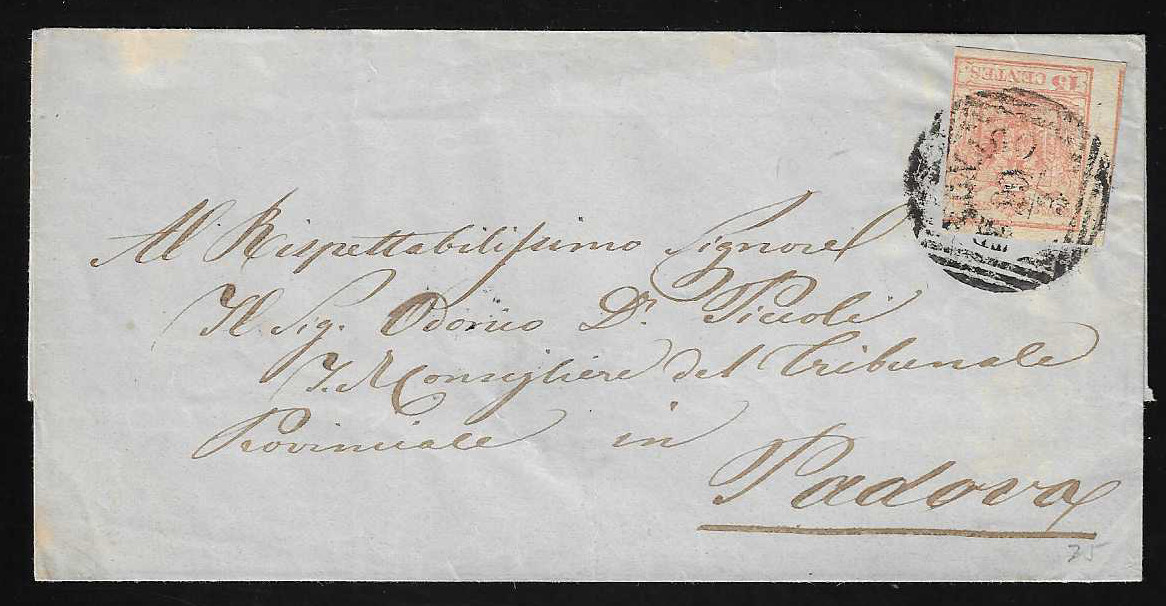 15 CENTES.
Al Rispettabilissimo Signore
Il Sig. Odorico Dr. Piccoli
I. R. Consigliere del Tribunale
Provinciale in
Padova
75